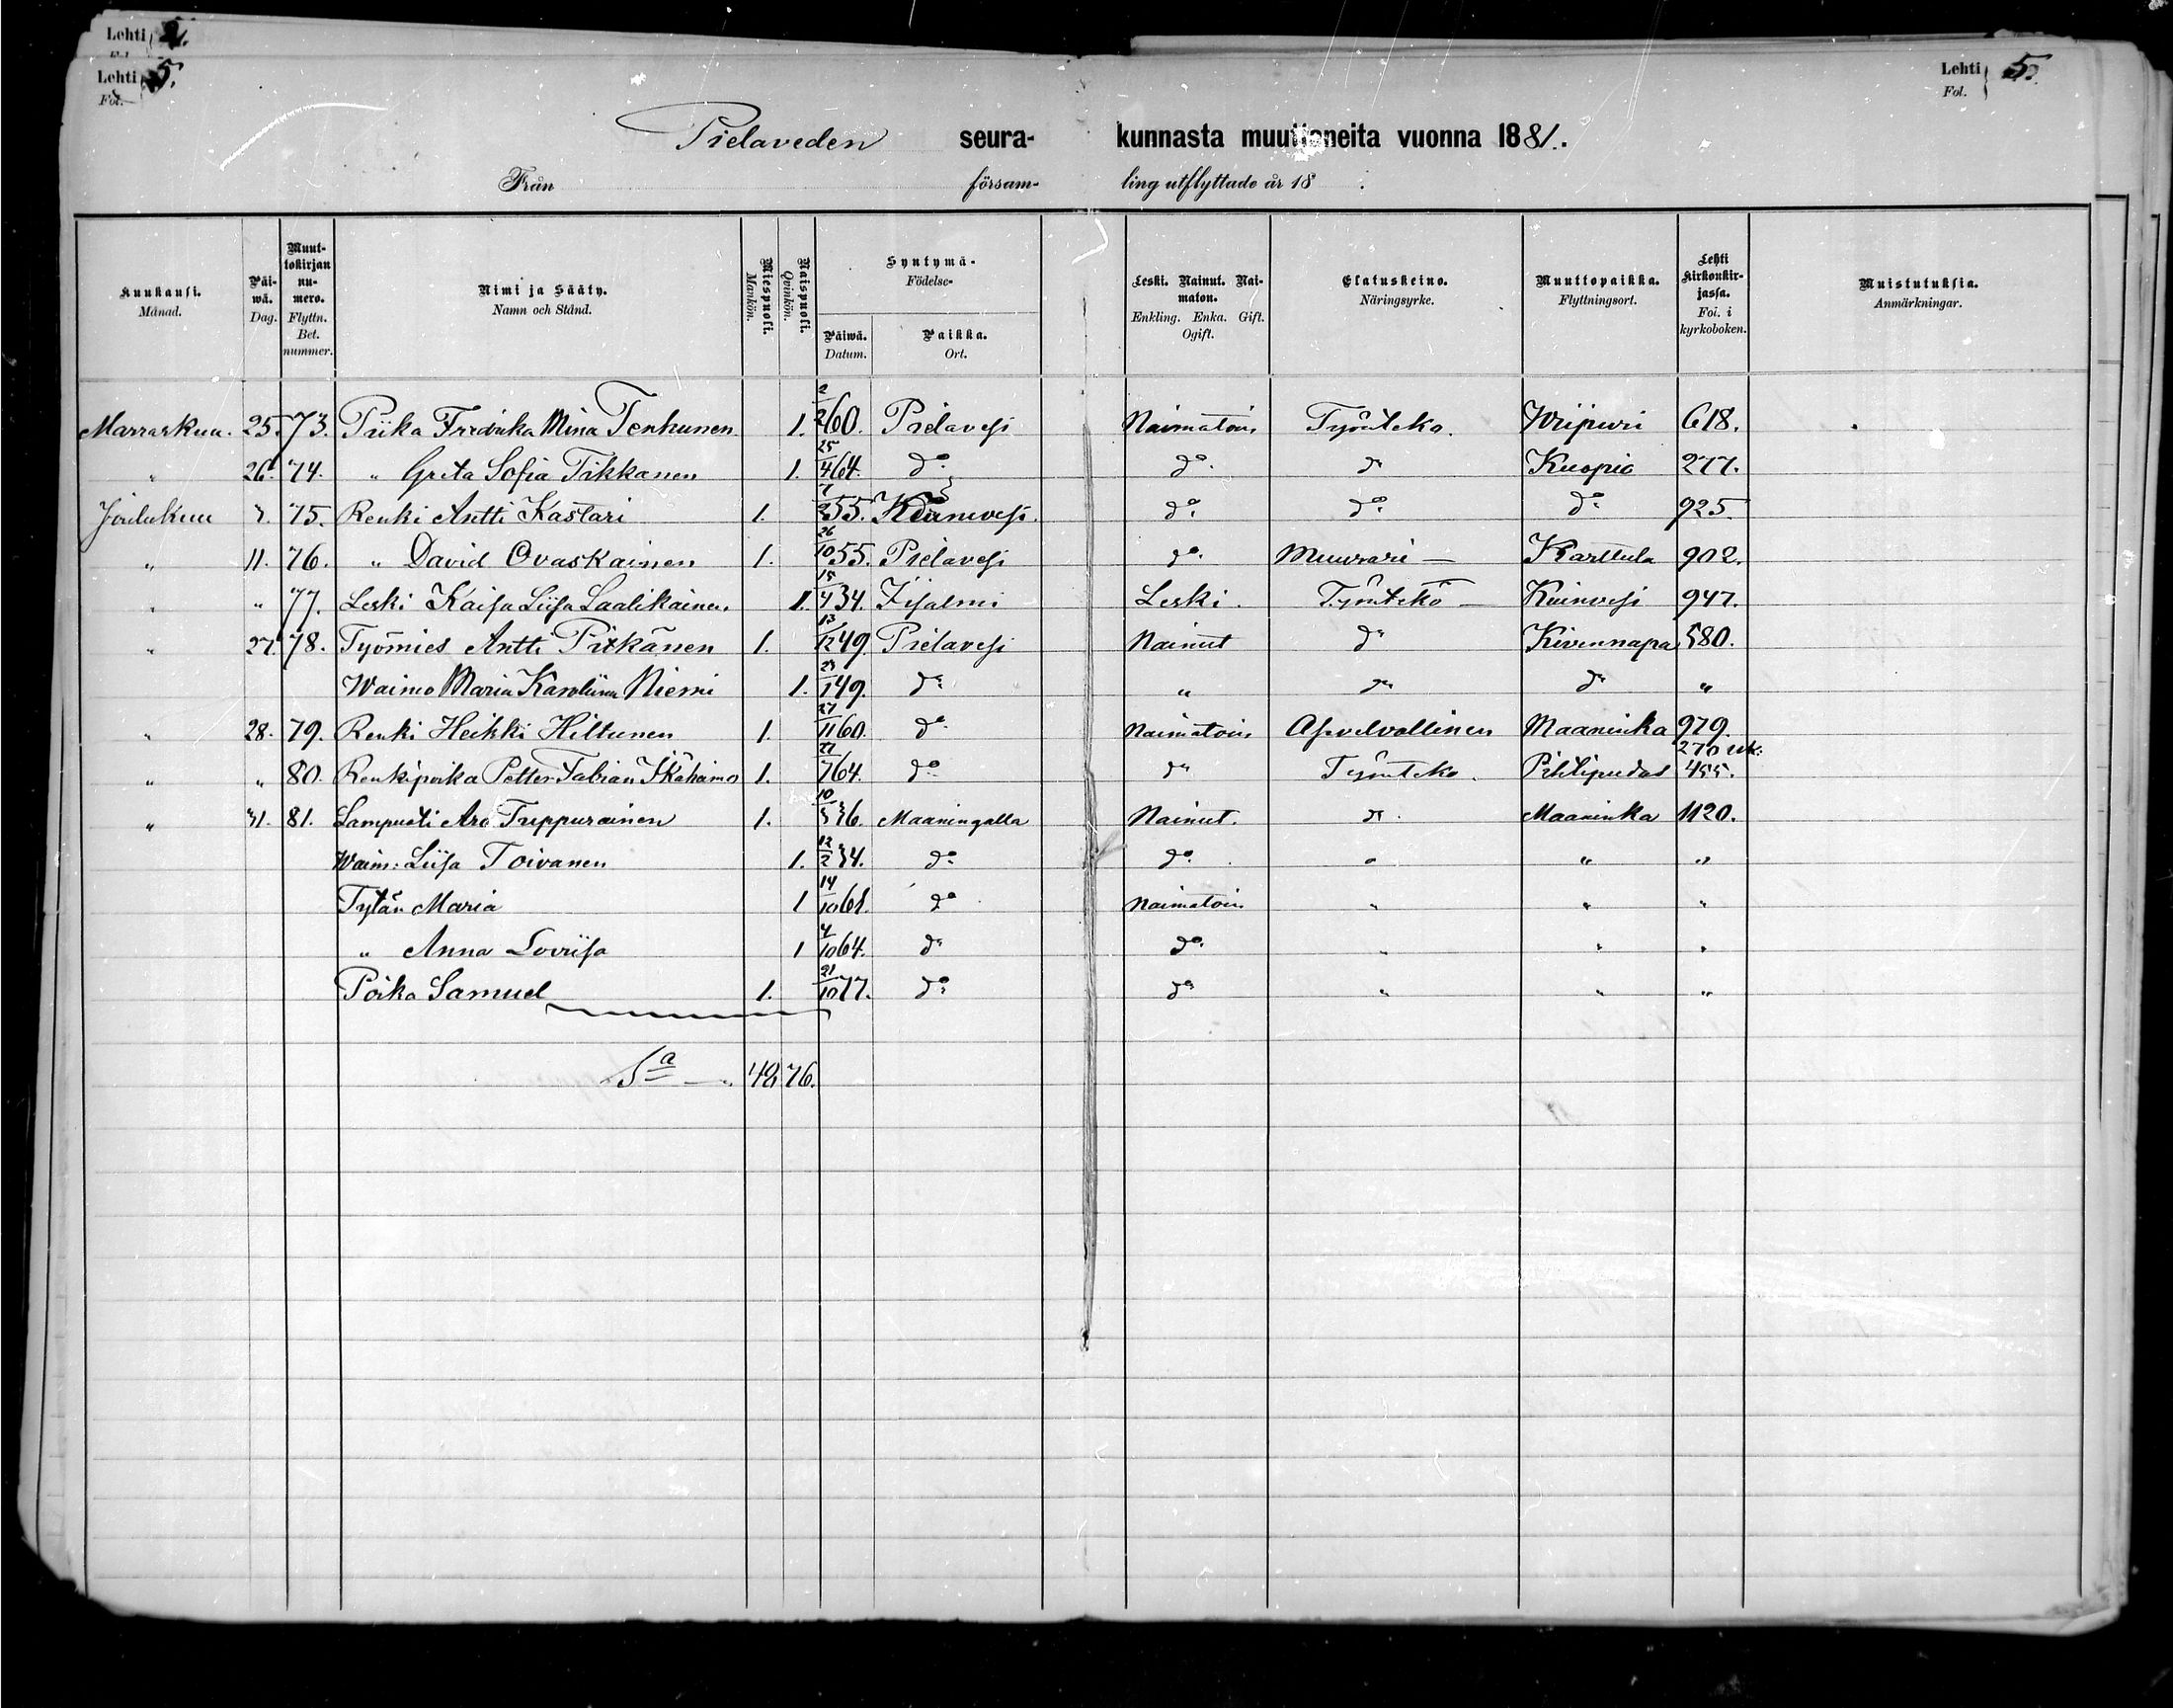 Lehti 4.
Lehti 5.
Fol.
Lehti 5.
Fol.
Pielaveden seura- kunnasta muuttaneita vuonna 1881.
Från försam- ling utflyttade år 18 .
Kuukausi. Månad. Päiwä. Dag. Muuttokirjan numero. Flyttn. Bet. nummer. Nimi ja Sääty. Namn och Stånd. Miespuoli. Mankön. Naispuoli. Qvinkön. Syntymä- Födelse- Päiwä. Datum. Paikka. Ort. Leski. Nainut. Naimaton. Enkling. Enka. Gift. Ogift. Elatuskeino. Näringsyrke. Muuttopaikka. Flyttningsort. Lehti kirkonkirjassa. Foi. i kyrkoboken. Muistutuksia. Anmärkningar.
Marraskuu. 25. 73. Piika Fredrika Mina Tenhunen 1. 2/2 60. Pielavesi Naimatoin Työnteko. Wiipuri 618.
" 26. 74. " Greta Sofia Tikkanen 1. 25/4 64. do. do. do Kuopio 277.
Joulukuu 7. 75. Renki Antti Kastari 1. 7/2 55. do. do. do. 925.
" 11. 76. " David Ovaskainen 1. 26/10 55. Pielavesi do. Muurari — Karttula 902.
" " 77. Leski Kaisa Liisa Laalikainen. 1. 15/4 34. Iisalmi Leski. Työnteko — 947.
" 27. 78. Työmies Antti Pitkänen 1. 13/12 49. Pielavesi Nainut do Kivennapa 580.
Waimo Maria Karoliina Niemi 1. 23/1 49. do " do do "
" 28. 79. Renki Heikki Hiltunen 1. 27/11 60. do Naimatoin Asevelvollinen Maaninka 979.
270 uk:
" " 80. Renkipoika Petter Fabian 1. 27/7 64. do do Työnteko. Pihtipudas 455.
" 31. 81. Lampuoti Aro Truppurainen 1. 10/5 36. Maaningalla Nainut. do. Maaninka 1120.
Waim: Liisa Toivanen 1. 12/2 34. do do. " " "
Tytär Maria 1 14/10 61. do Naimatoin " " "
" Anna Loviisa 1 4/10 64. do do. " " "
Poika Samuel 1. 21/10 77. do do " " "
Sa —. 48 76.